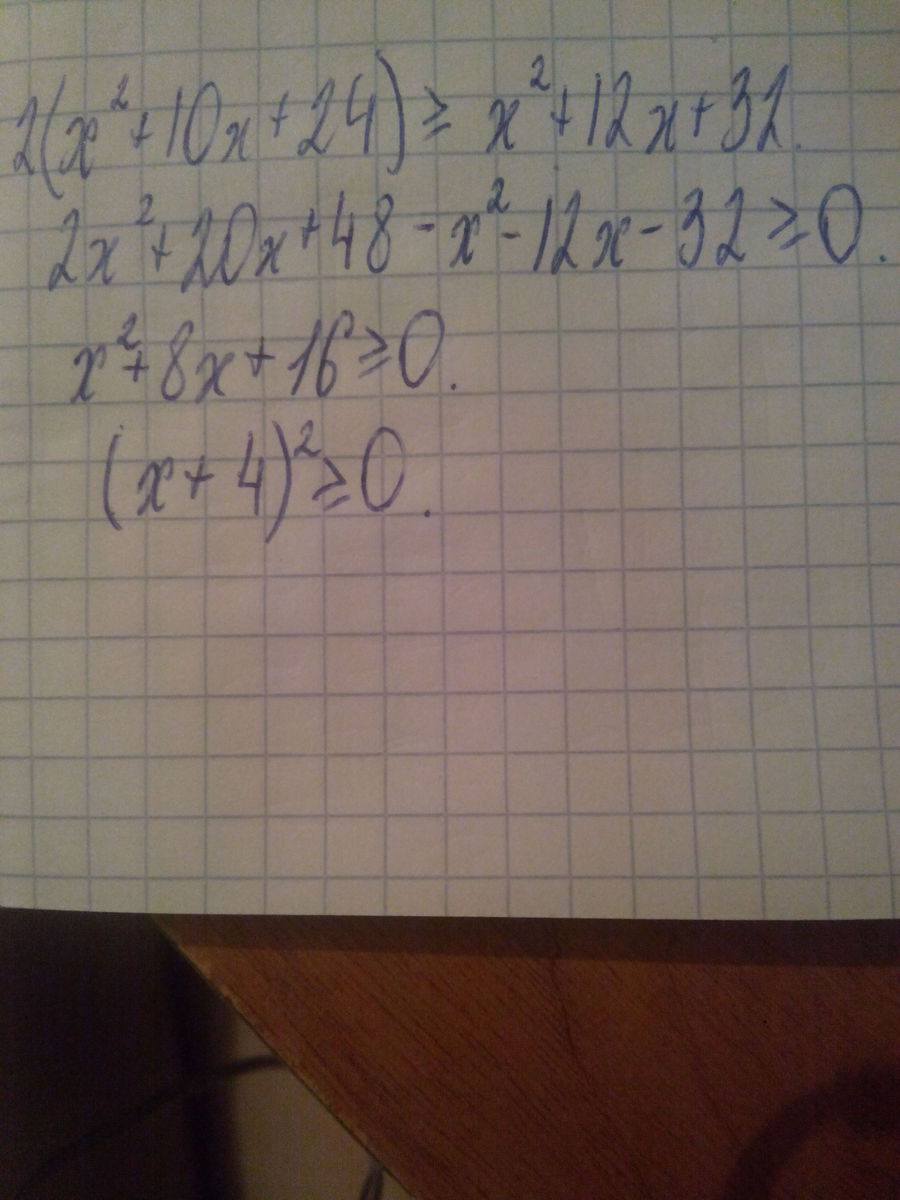 2(x²+10x+24)≥ x²+12x+32.
2x²+20x+48-x²-12x-32≥0.
x²+8x+16≥0.
(x+4)²≥0.